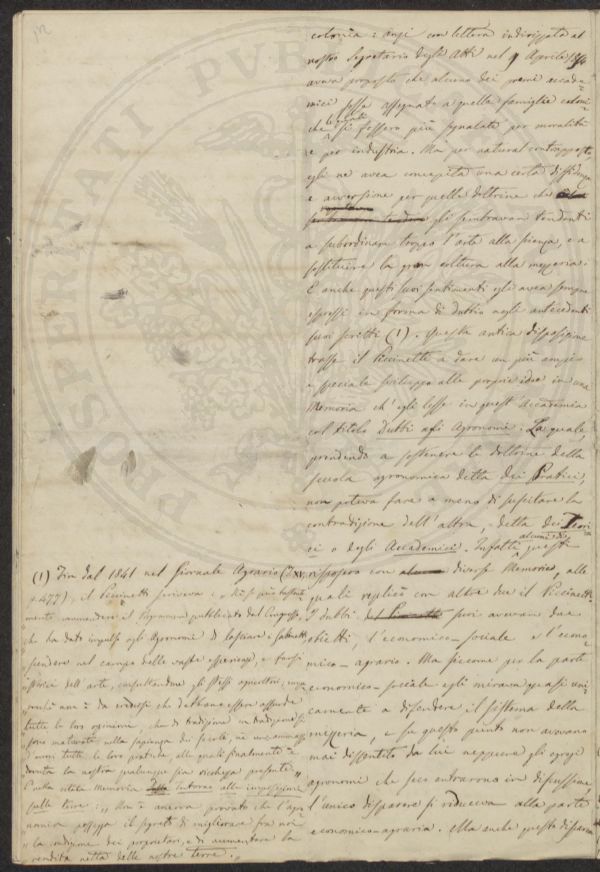 colonia: anzi con lettera indirizzata al
nostro Segretario degli Atti nel 9 Aprile
aveva proposto che alcuno dei premi accade-
mici fosse assegnato a quelle famiglie coloni-
che le quali si fossero più segnalate per moralità
e per industria. Ma per natural contrapposto,
egli ne avea concepita una certa diffidenza
e avversione per quelle dottrine che
gli sembravan tendenti
a subordinare troppo l'arte alla scienza, e a
sostituire la gran cultura alla mezzeria:
E anche questi suoi sentimenti egli avea sempre
espressi in forma di dubbio negli antecedenti
suoi scritti (1). Questa antica disposizione
trasse il Piccinetti a dare un più ampio
e speciale sviluppo alle proprie idee in una
Memoria ch'egli lesse in quest'Accademia
col titolo Dubbi agli Agronomi. La quale,
prendendo a sostenere le dottrine della
scuola agronomica detta dei Pratici,
non poteva fare a meno di suscitare la
contradizione dell'altra, detta dei Teori-
ci o degli Accademici. Infatti alcuni di questi
risposero con diverse Memorie, alle
quali replicò con altre due il Piccinetti.
I dubbi suoi avevan due
obietti, l'economico-sociale e l'econo-
mico-agrario. Ma siccome per la parte
economico-sociale egli mirava quasi uni-
camente a difendere il sistema della
mezzeria, e su questo punto non avevano
mai dissentito da lui neppure gli egregi
agronomi che seco entrarono in discussione,
l'unico disparere si riduceva alla parte
economico-agraria. Ma anche questo disparere
(1) Fin dal 1841 nel Giornale Agrario (T. XV,
477), il Piccinetti scriveva:
rammentare il Programma pubblicato dal Congresso,
che ha dato impulso agli Agronomi di lasciare i gabinetti
scendere nel campo delle vaste sperienze, e farsi
istorici dell'arte, consultandone gli stessi agricoltori;
da credersi che debbano essere assurde
tutte le loro opinioni, che di tradizione in tradizione si
sono maturate nella sapienza dei secoli, nè
tutte le loro pratiche, alle quali finalmente è
dovuta la nostra qualunque sia ricchezza presente."
E nella citata Memoria intorno alle imposizioni
sulle terre: "Non è ancora provato che l'agro-
nomia possegga il segreto di migliorare fra noi
la condizione dei proprietari, e di aumentare la
rendita netta delle nostre terre."